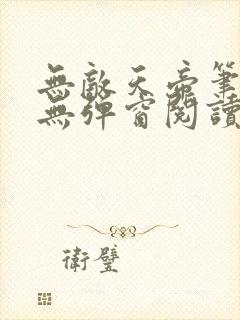 無敵天帝筆
無彈窗閱讀
衛璧